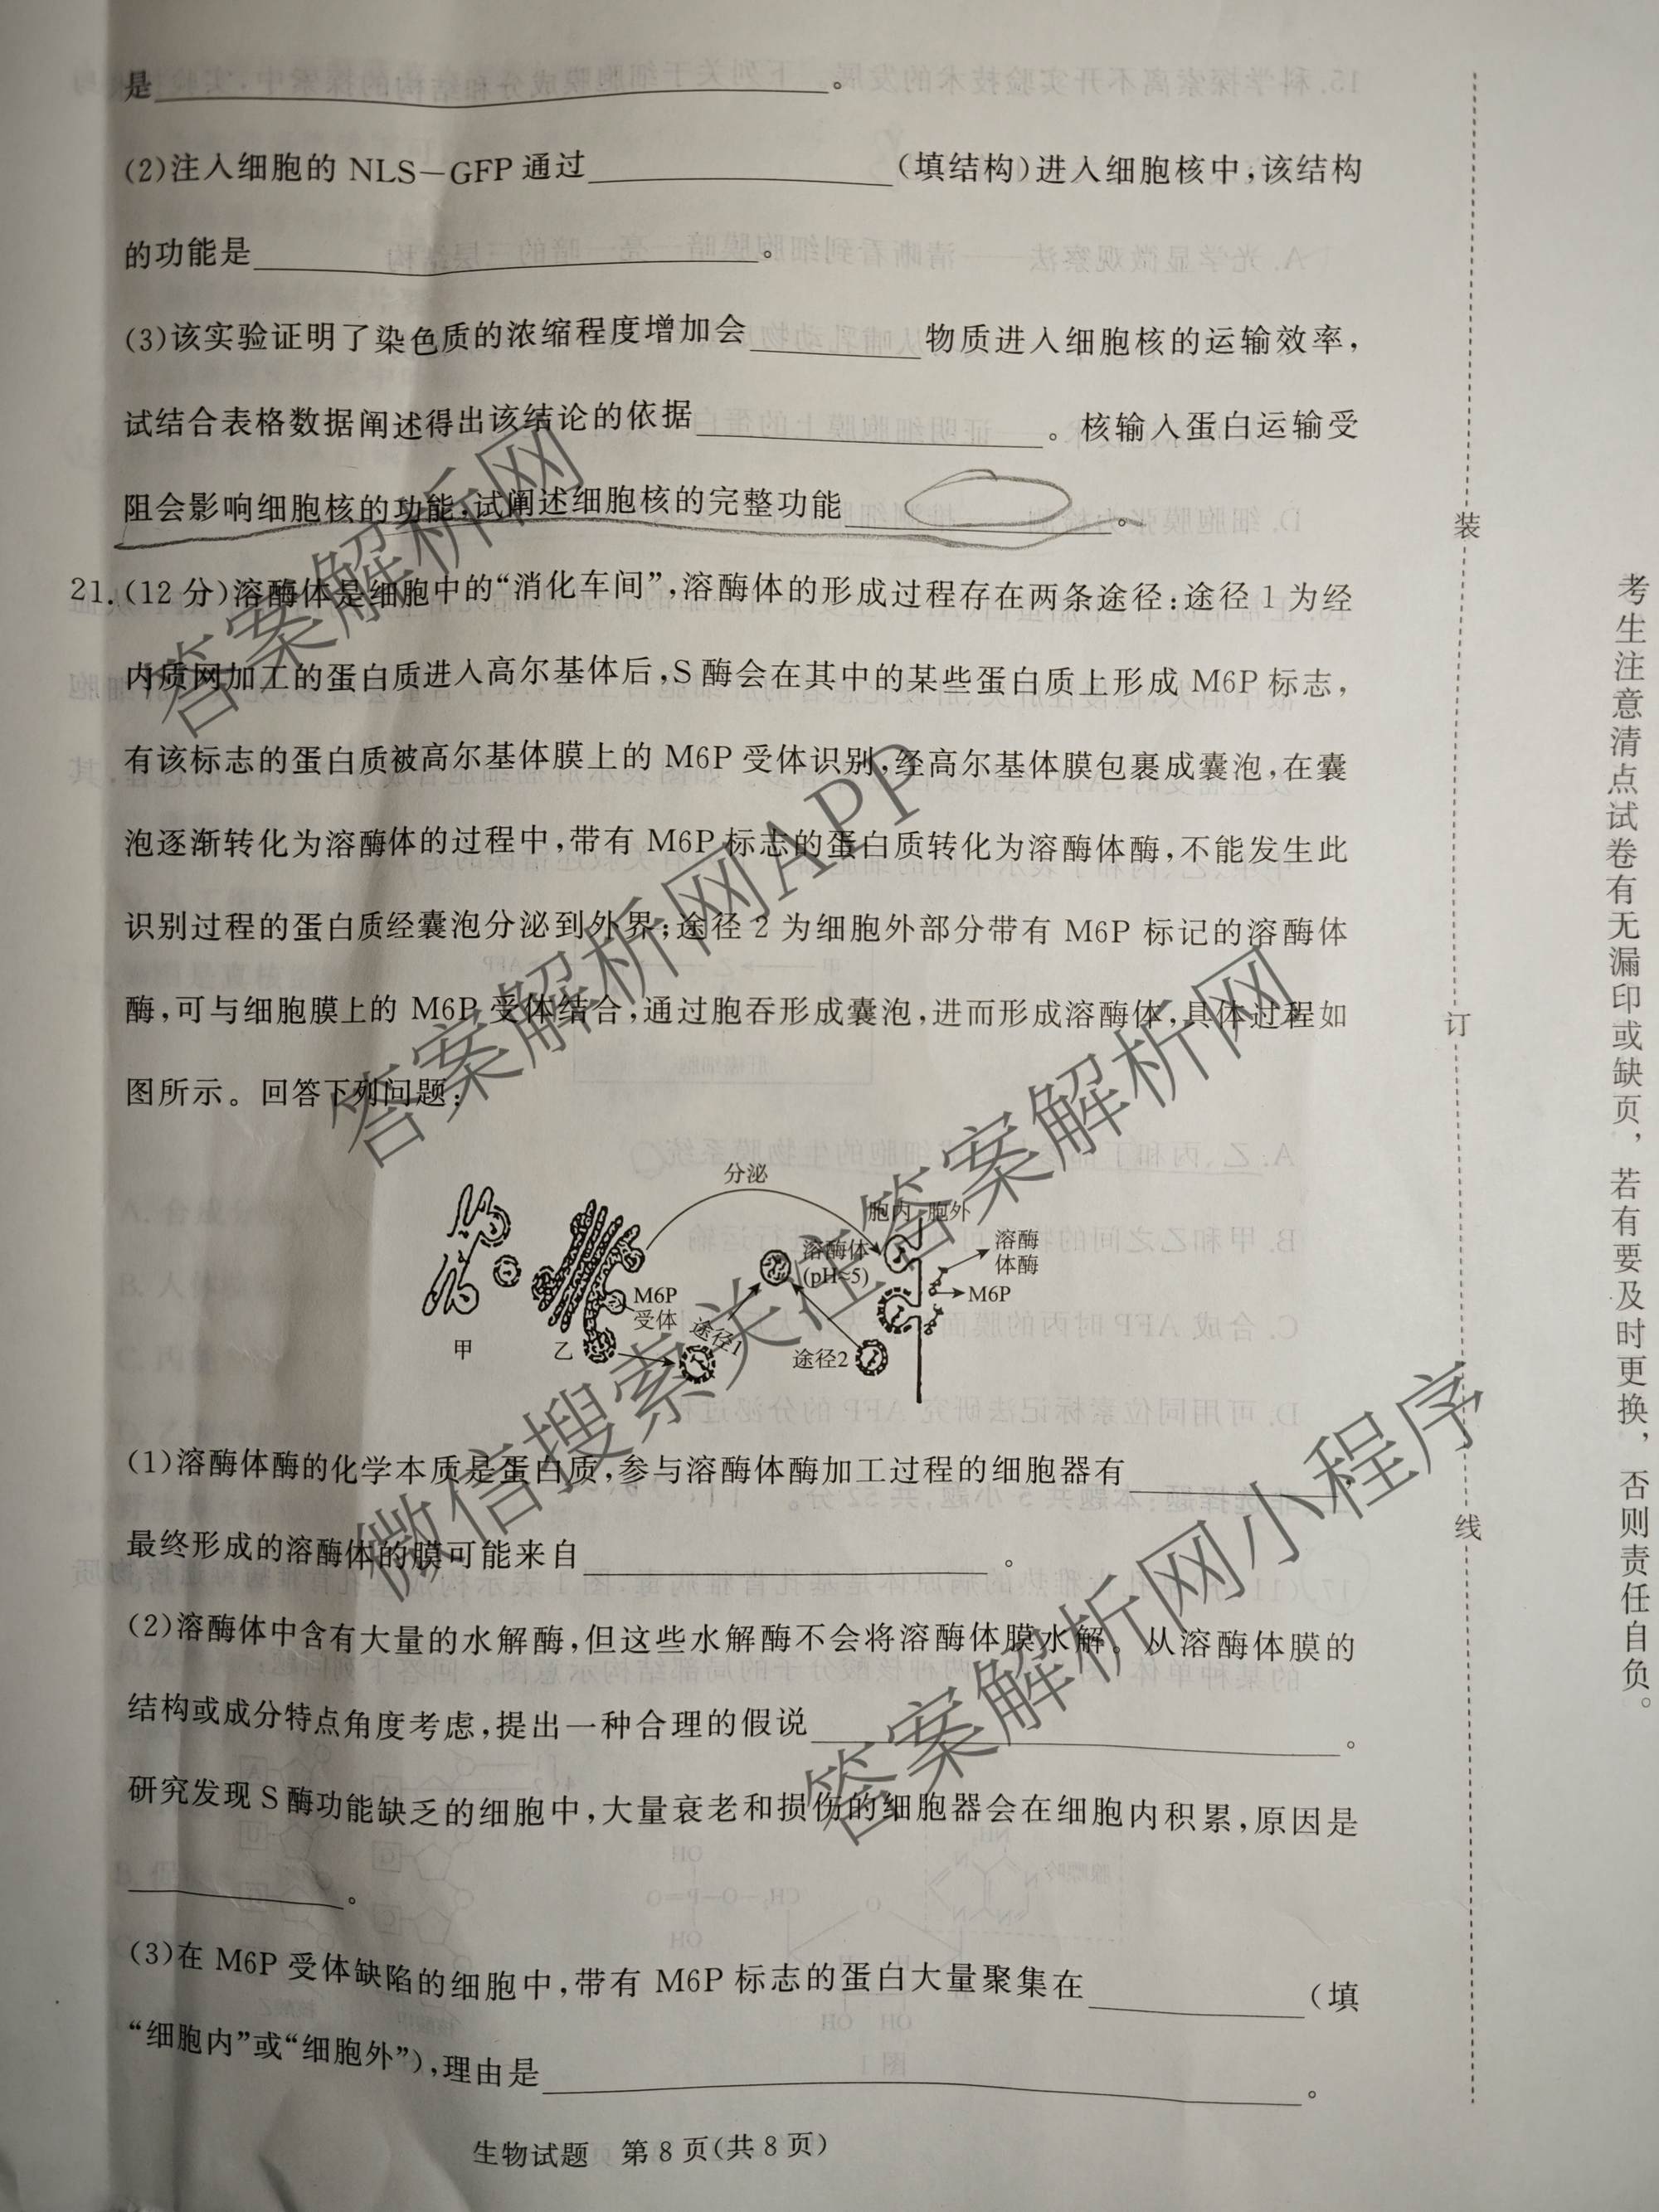 是。
(2)注入细胞的 NLS-GFP 通过(填结构)进入细胞核中,该结构
的功能是。
(3)该实验证明了染色质的浓缩程度增加会物质进入细胞核的运输效率,
试结合表格数据阐述得出该结论的依据。核输入蛋白运输受
阻会影响细胞核的功能,试阐述细胞核的完整功能。
21.(12分)溶酶体是细胞中的“消化车间”,溶酶体的形成过程存在两条途径:途径1为经
内质网加工的蛋白质进入高尔基体后,S酶会在其中的某些蛋白质上形成 M6P 标志,
有该标志的蛋白质被高尔基体膜上的 M6P 受体识别,经高尔基体膜包裹成囊泡,在囊
泡逐渐转化为溶酶体的过程中,带有 M6P 标志的蛋白质转化为溶酶体酶,不能发生此
识别过程的蛋白质经囊泡分泌到外界;途径2为细胞外部分带有 M6P 标记的溶酶体
酶,可与细胞膜上的 M6P 受体结合,通过胞吞形成囊泡,进而形成溶酶体,具体过程如
图所示。回答下列问题:
分泌
胞内 胞外
溶酶体
(pH≈5)
溶酶
体酶
M6P
M6P
受体
途径1
途径2
甲
乙
(1)溶酶体酶的化学本质是蛋白质,参与溶酶体酶加工过程的细胞器有,
最终形成的溶酶体的膜可能来自。
(2)溶酶体中含有大量的水解酶,但这些水解酶不会将溶酶体膜水解。从溶酶体膜的
结构或成分特点角度考虑,提出一种合理的假说。
研究发现S酶功能缺乏的细胞中,大量衰老和损伤的细胞器会在细胞内积累,原因是
。
(3)在 M6P 受体缺陷的细胞中,带有 M6P 标志的蛋白大量聚集在(填
“细胞内”或“细胞外”),理由是。
生物试题 第8页(共8页)
装
订
线
考生注意清点试卷有无漏印或缺页,若有要及时更换,否则责任自负。
答案解析网
答案解析网APP
微信搜索关注答案解析网
答案解析网小程序